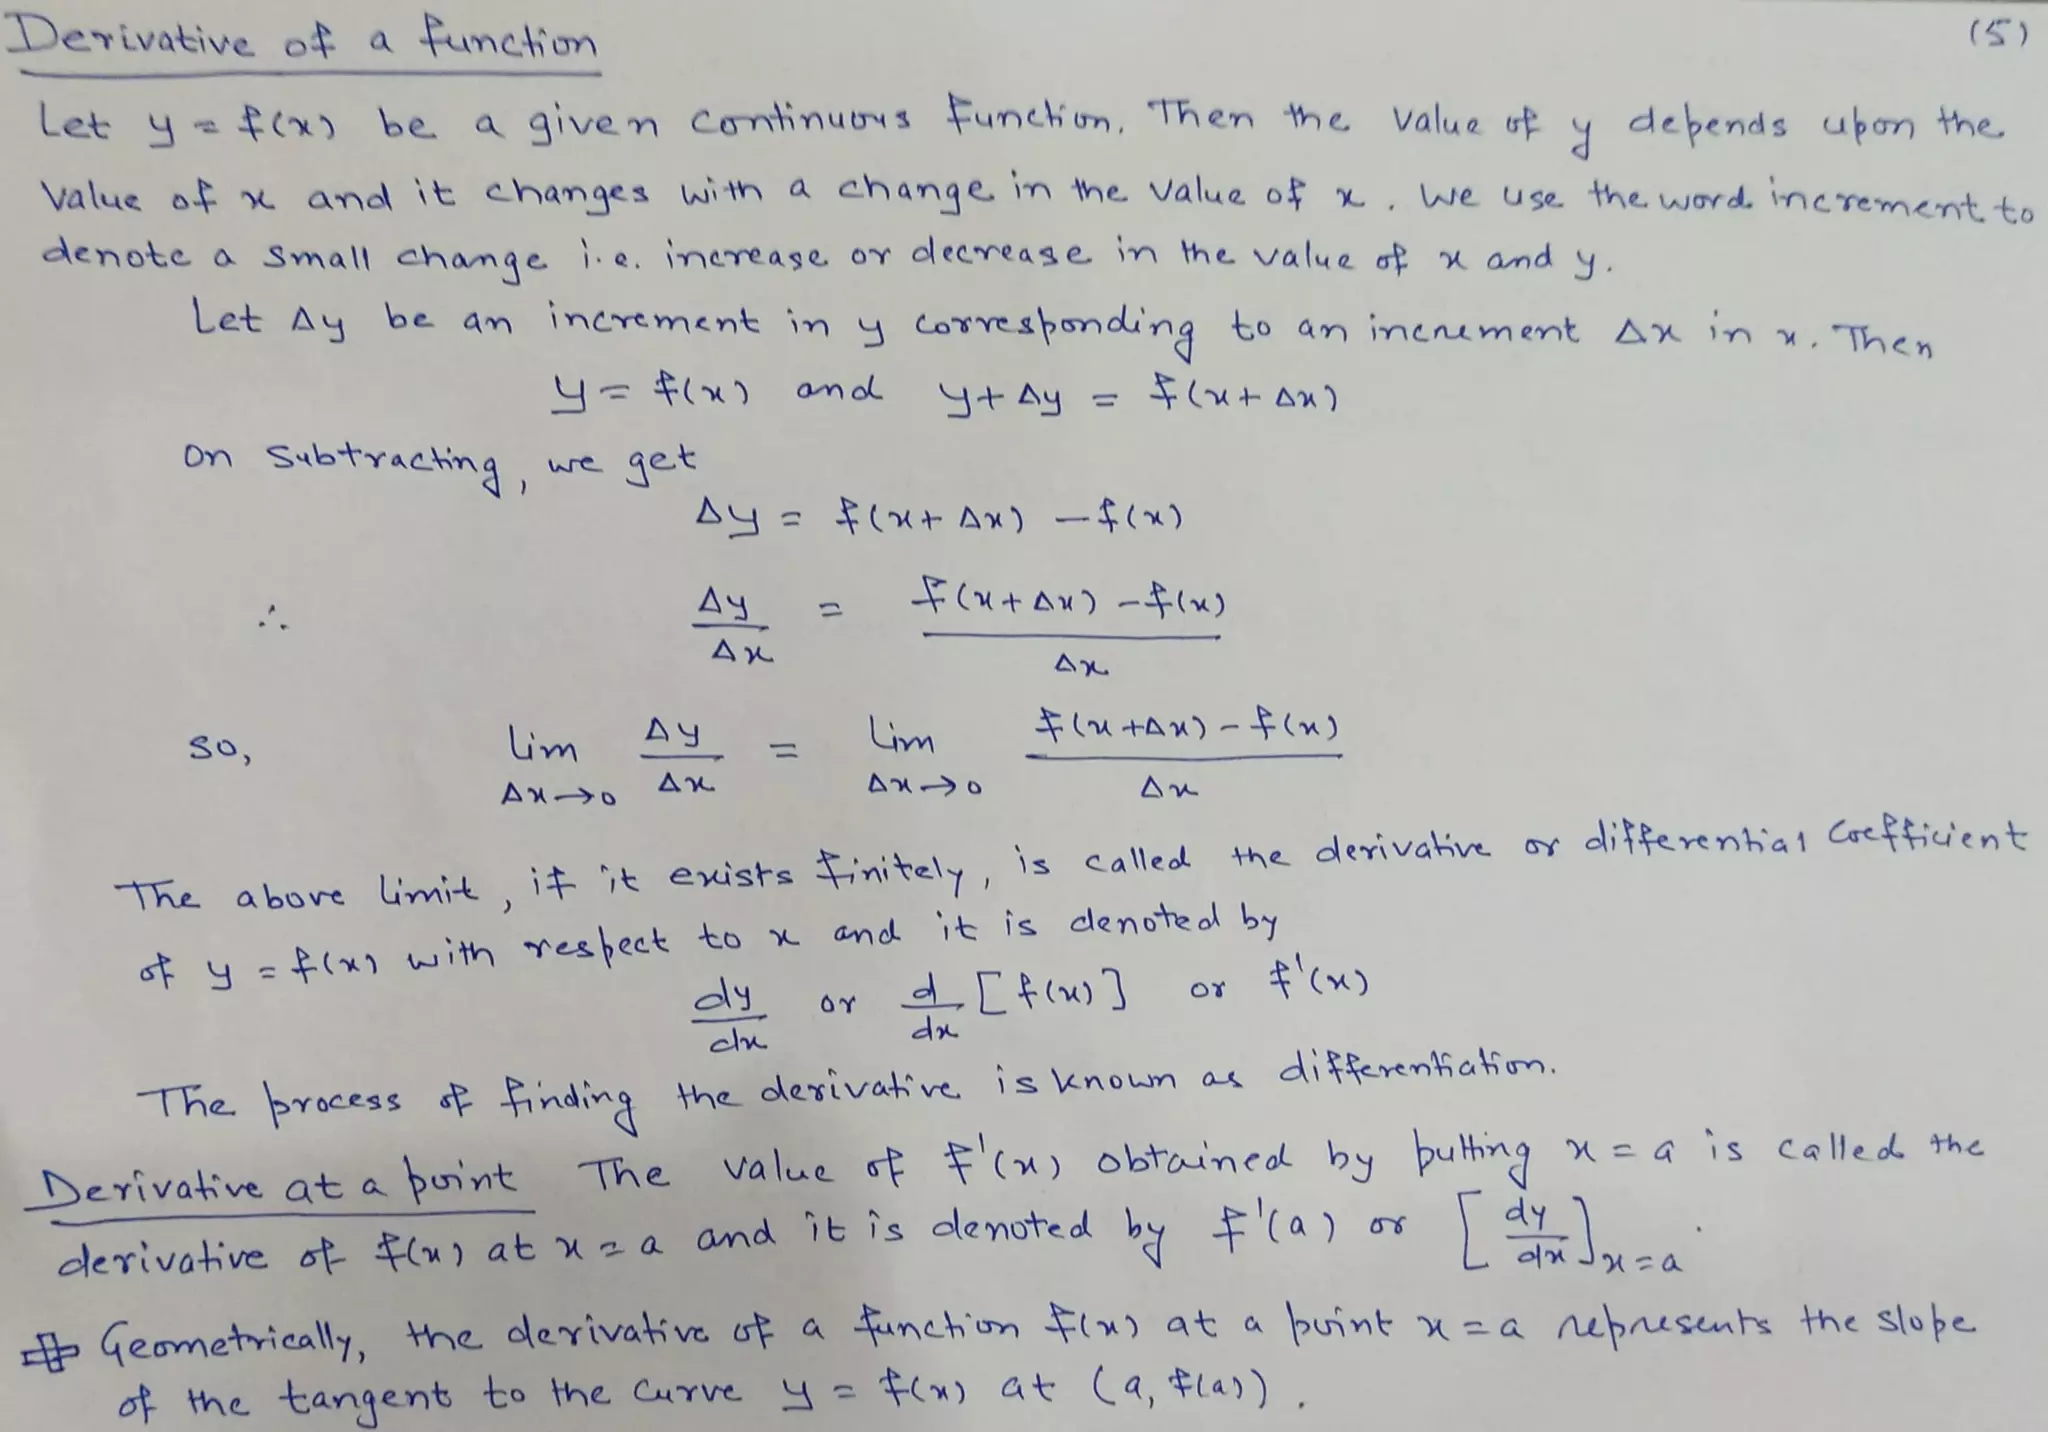 Derivative of a function (5)
Let y = f(x) be a given continuous function. Then the value of y depends upon the
value of x and it changes with a change in the value of x. We use the word increment to
denote a small change i.e. increase or decrease in the value of x and y.
Let Δy be an increment in y corresponding to an increment Δx in x. Then
y = f(x) and y + Δy = f(x + Δx)
On subtracting, we get
Δy = f(x + Δx) - f(x)
∴ Δy/Δx = (f(x + Δx) - f(x))/Δx
so, lim Δx→0 Δy/Δx = lim Δx→0 (f(x + Δx) - f(x))/Δx
The above limit, if it exists finitely, is called the derivative or differential coefficient
of y = f(x) with respect to x and it is denoted by
dy/dx or d/dx [f(x)] or f'(x)
The process of finding the derivative is known as differentiation.
Derivative at a point The value of f'(x) obtained by putting x = a is called the
derivative of f(x) at x = a and it is denoted by f'(a) or [dy/dx]x=a.
Geometrically, the derivative of a function f(x) at a point x = a represents the slope
of the tangent to the curve y = f(x) at (a, f(a)).